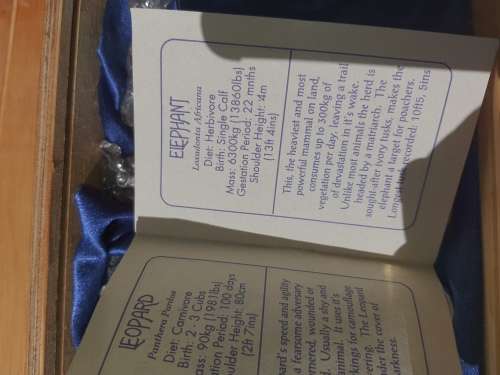 ELEPHANT
Loxodonta Africana
Diet: Herbivore
Birth: Single Calf
Mass: 6300kg (13860lbs)
Gestation Period: 22 mnths
Shoulder Height: 4m
(13ft 4ins)
This, the heaviest and most
powerful mammal on land,
consumes up to 300kg of
vegetation per day, leaving a trail
of devastation in it's wake.
Unlike most animals the herd is
headed by a matriarch. The
sought-after ivory tusks, makes the
elephant a target for poachers.
Longest tusk recorded: 10ft5, 5ins
LEOPARD
Panthera Pardus
Diet: Carnivore
Birth: 2 - 3 Cubs
ass: 90kg (198lbs)
tation Period: 100 days
oulder Height: 80cm
(2ft 7ins)
pard's speed and agility
a fearsome adversary
rnered, wounded or
d. Usually a shy and
animal. It uses it's
kings for camouflage
ering. The Leopard
nder the cover of
arkness.